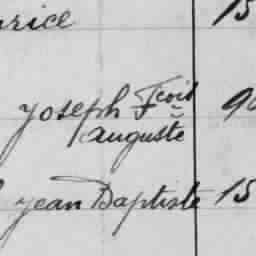 urice 15
Joseph Fcois 90
auguste
jean Baptiste 15